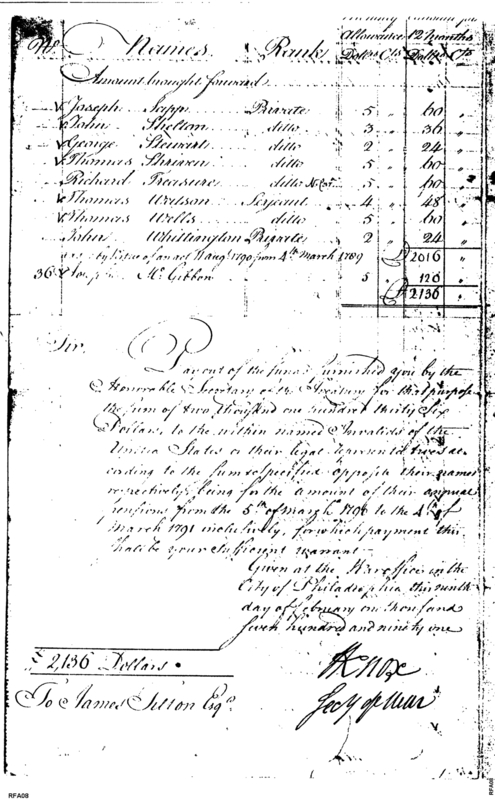 No. Names. Rank Monthly Allowance Annual pay 12 Months
Dollrs Cts Dollrs Cts
Amount brought forward
Joseph Sapp Private 5 " 60 "
John Shelton ditto 3 " 36 "
George Stewart ditto 2 " 24 "
Thomas Shriven ditto 5 " 60 "
Richard Treasure ditto 5 " 60 "
Thomas Watson Serjeant 4 " 48 "
Thomas Wells ditto 5 " 60 "
John Whittington Private 2 " 24 "
by virtue of an act 11 augt 1790 from 4th March 1789 2016 "
36 Joseph McGibbon 5 " 120 "
2136 "
Sir.
Pay out of the funds furnished you by the
Honorable Secretary of the Treasury for that purpose
the sum of two thousand one hundred thirty Six
Dollars, to the within named Invalids of the
United States or their legal representatives ac-
cording to the sums specified opposite their names
respectively, being for the amount of their annual
pensions from the 5th of march 1790 to the 4th of
March 1791 inclusively, for which payment this
shall be your sufficient warrant
Given at the War office in the
City of Philadelphia this ninth
day of february one thousand
seven hundred and ninety one
$ 2,136 Dollars.
HKnox
Secy of War
To James Tilton Esqr.
RFA08
RFA08